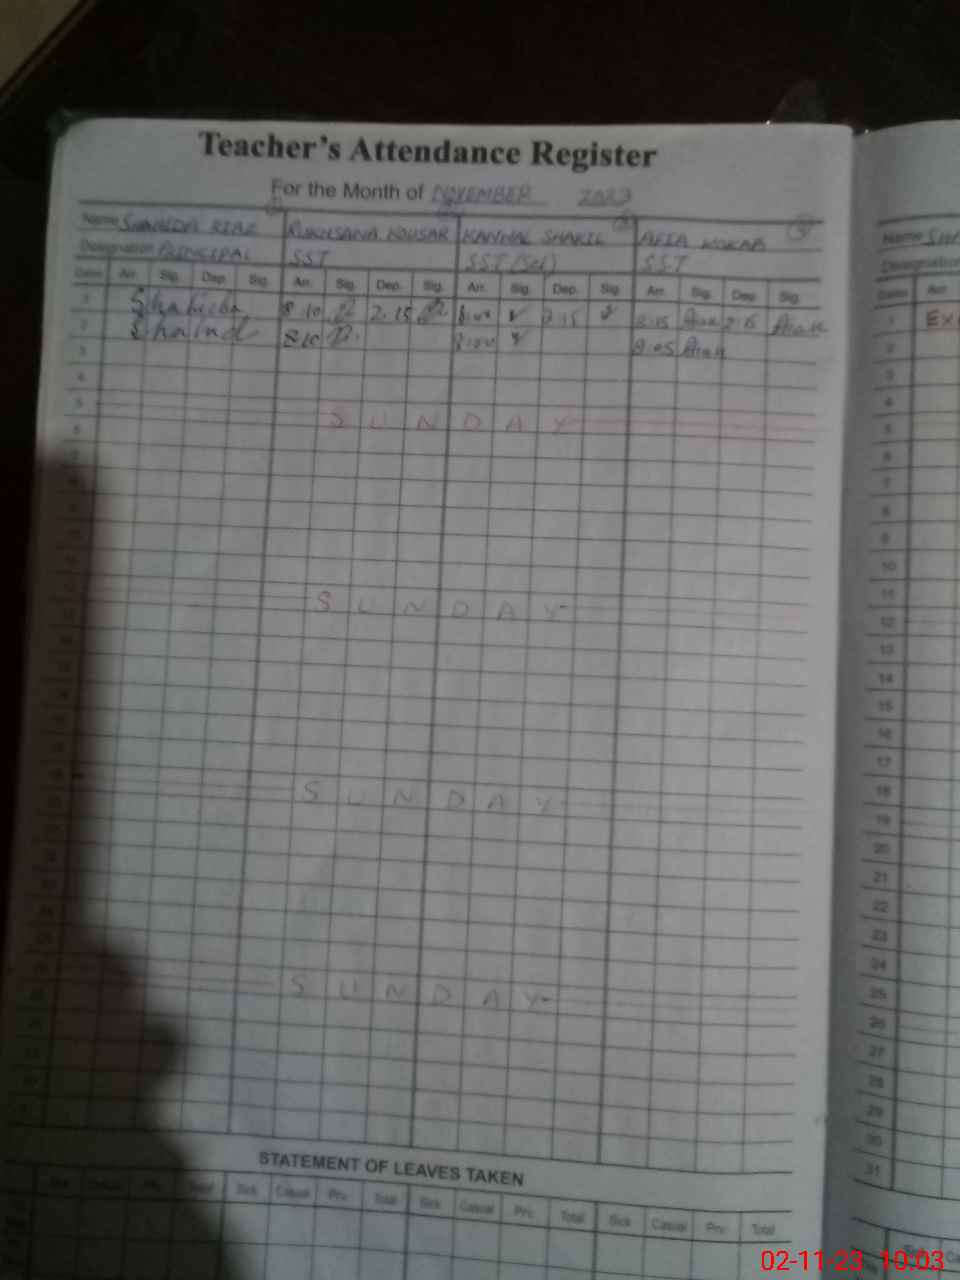 Teacher's Attendance Register
For the Month of NOVEMBER 2023
Name SHAHIDA RIAZ RUKHSANA KOUSAR KANWAL SHAKIL AFIA KOKAB Name
Designation PRINCIPAL SST SST (Sci) SST Designation
Dates Arr. Sig. Dep. Sig. Arr. Sig. Dep. Sig. Arr. Sig. Dep. Sig. Arr. Sig. Dep. Sig. Dates Arr.
1 8.10 2.15 8:00 2:15 8:15 2:15 1
2 8.10 8:00 8:05 2
3 3
4 4
5 SUNDAY 5
6 6
7 7
8 8
9 9
10
11
SUNDAY 12
13
14
15
16
17
18
SUNDAY 19
20
21
22
23
24
25
SUNDAY 26
27
28
29
30
31
STATEMENT OF LEAVES TAKEN
Sick Casual Prv. Total Sick Casual Prv. Total Sick Casual Prv. Total
02-11-23 10:03